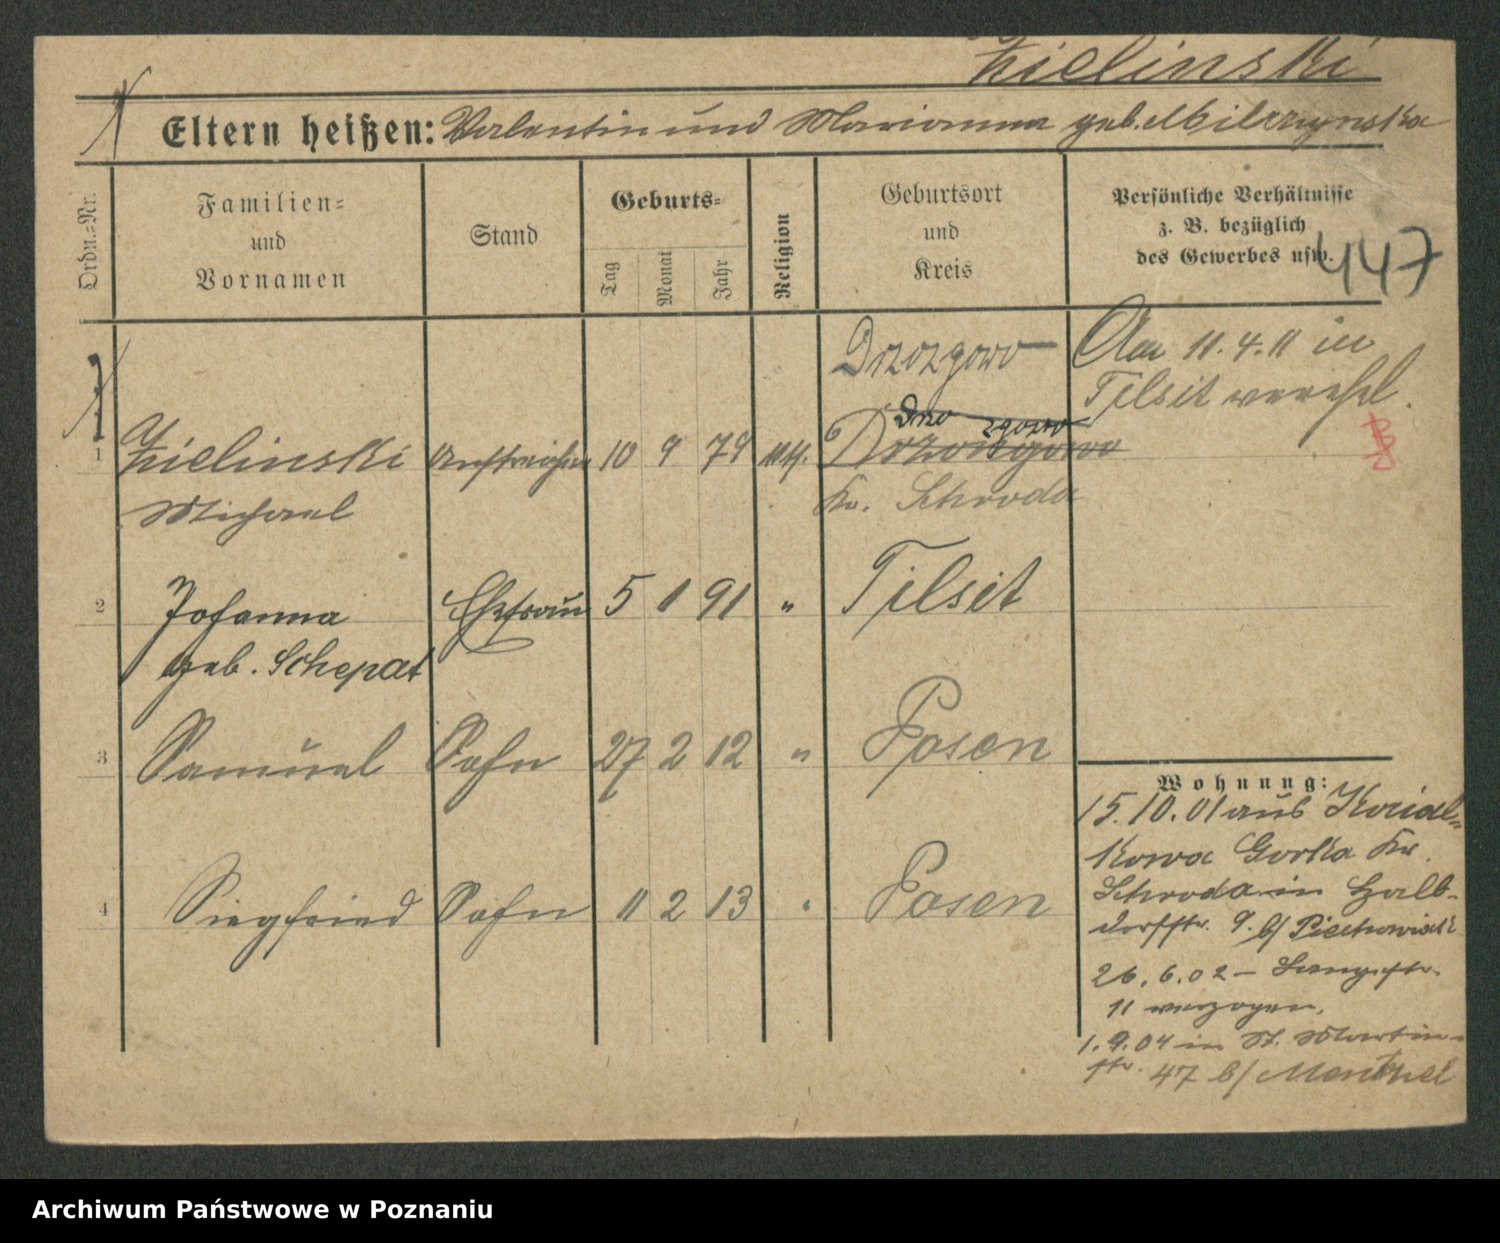 Zielinski
Eltern heißen: Valentin und Marianna geb. Milczynska
Ordn.-Nr.
Familien-
und
Vornamen
Stand
Geburts-
Tag
Monat
Jahr
Religion
Geburtsort
und
Kreis
Persönliche Verhältnisse
z. B. bezüglich
des Gewerbes usw.
447
Drozgowo
Am 11.4.11 in
Tilsit verehel.
1 Zielinski Anstreicher 10 9 79 kath.
Michael
Kr. Schroda
2 Johanna Ehefrau 5 1 91 " Tilsit
geb. Schepat
3 Samuel Sohn 27 2 12 " Posen
4 Siegfried Sohn 11 2 13 " Posen
Wohnung:
15.10.01 aus Kozial-
kowa Gorka Kr.
Schroda in Halb-
dorfstr. 9. b/ Piechowiak
26.6.02 – Langestr.
11 verzogen.
1.9.04 in St. Martin-
str. 47 b/ Menkel
Archiwum Państwowe w Poznaniu